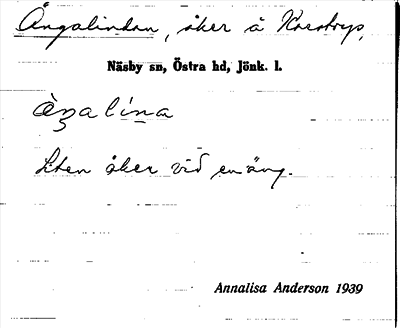 Ängalindan, åker å Korstorp,
Näsby sn, Östra hd, Jönk. l.
Liten åker vid en äng.
Annalisa Anderson 1939